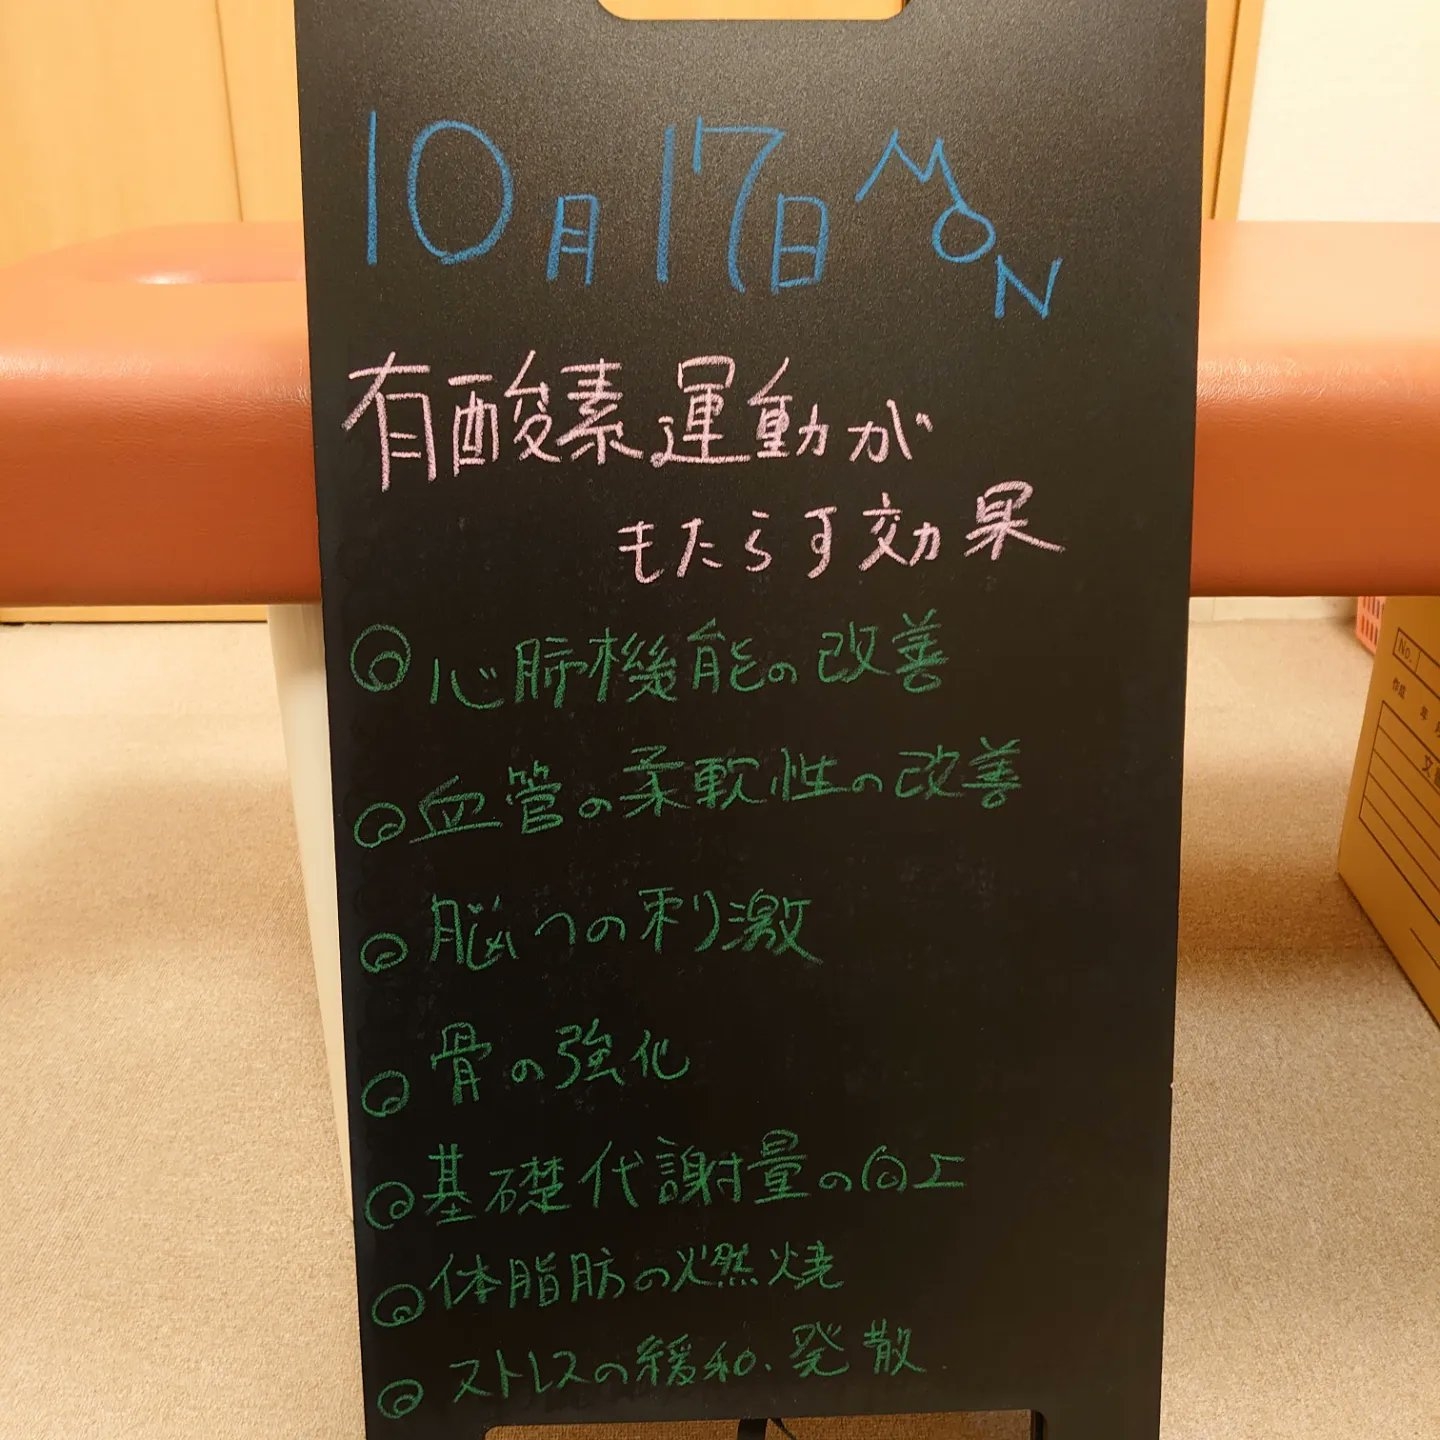 10月17日 MON
有酸素運動が
もたらす効果
◎心肺機能の改善
◎血管の柔軟性の改善
◎脳への刺激
◎骨の強化
◎基礎代謝量の向上
◎体脂肪の燃焼
◎ストレスの緩和、発散
No.
作成 年 月
文